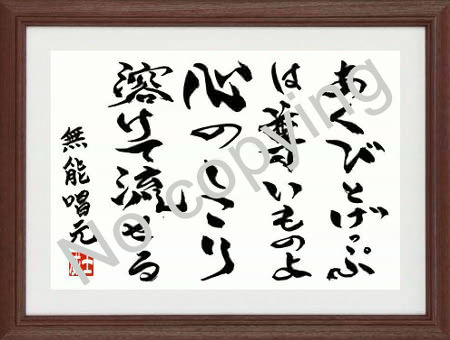 あくびとげっぷ
はいものよ
心のしこり
溶けて流せる
無能唱元
No copying